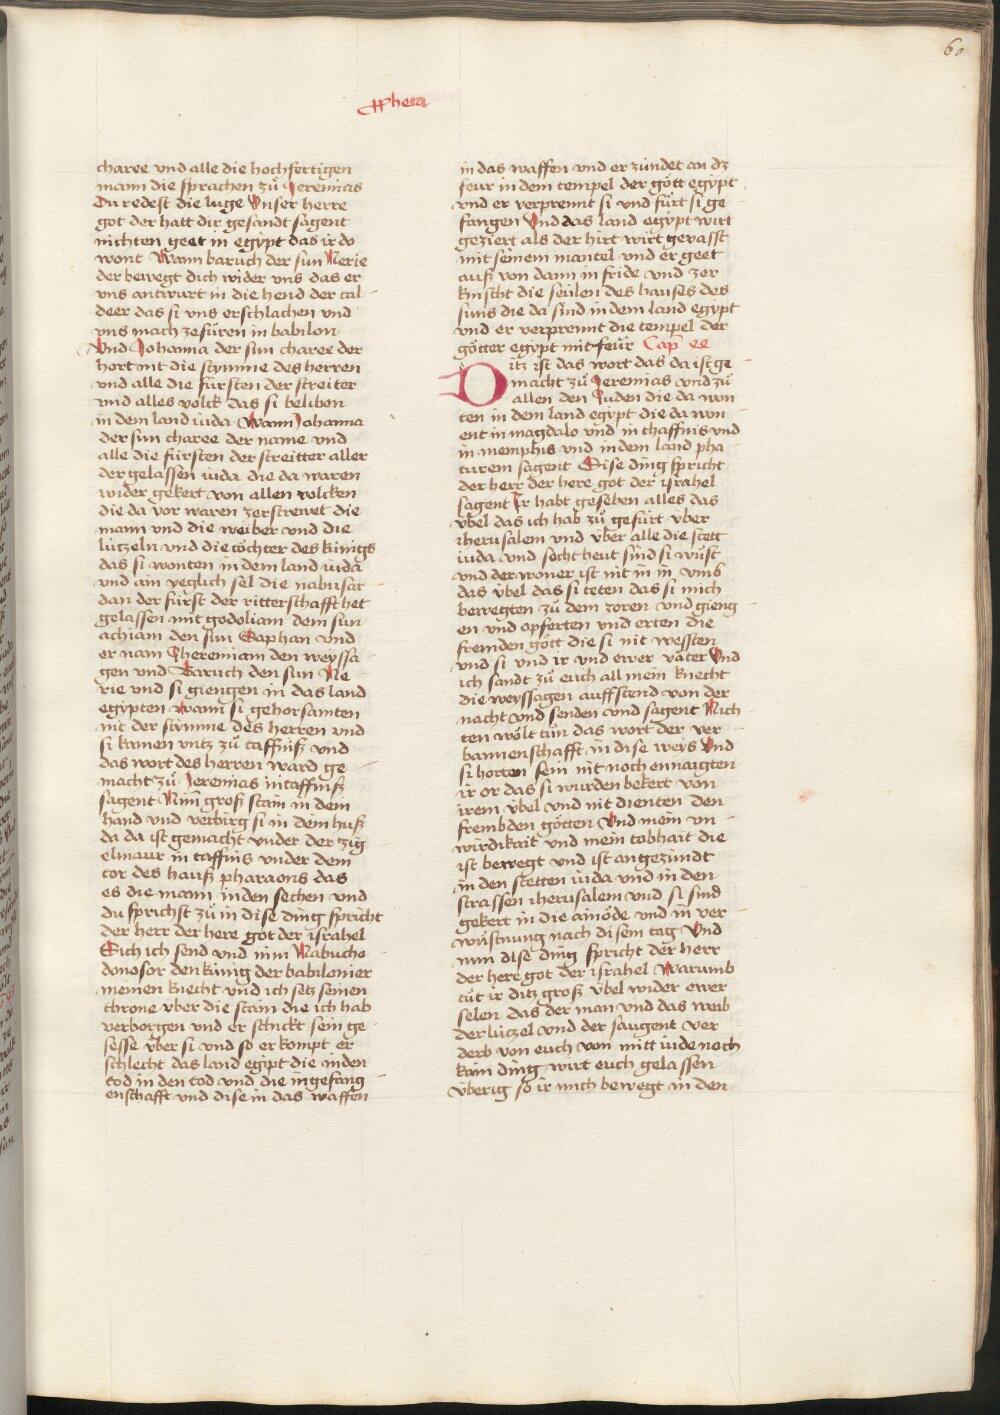 60
charee vnd alle die hochfertigen
mann die sprachen zů Jeremias
Du redest die luge Vnser herre
got der hatt dir gesandt sagent
nichten geet in egypt das ir do
wont Wann baruch der sun Nerie
der bewegt dich wider vns das er
vns antwurt in die hend der cal
deer das si vns erschlachen vnd
vns mach zefüren in babilon
Vnd Johanna der sun charee der
hort nit die stymme des herren
vnd alle die fürsten der streiter
vnd alles volck das si beliben
in dem land iuda Wann Johanna
der sun charee der name vnd
alle die fürsten der streitter aller
der gelassen iuda die da waren
wider gekert von allen volcken
die da vor waren zerstrewet die
mann vnd die weiber vnd die
lützeln vnd die töchter des künigs
das si wonten in dem land iuda
vnd ain yeglich sel die nabusar
dan der fürst der ritterschafft het
gelassen mit godoliam dem sun
achiam den sun Saphan vnd
er nam Jheremiam den weyssa
gen vnd Baruch den sun Ne
rie vnd si giengen in das land
egypten Wann si gehorsamten
nit der stymme des herren vnd
si kamen vntz zů taffniß vnd
das wort des herren ward ge
macht zů Jeremias in taffniß
sagent Nim groß stain in dem
hand vnd verbirg si in dem huß
da da ist gemacht vnder der zig
elmaur in taffnis vnder dem
tor des hauß pharaons das
es die mann inden sechen vnd
du sprichst zů in dise ding spricht
der herr der here got der israhel
Sich ich send vnd nim Nabucho
donosor den künig der babilonier
meinen knecht vnd ich setz seinen
throne vber die stain die ich hab
verborgen vnd er schickt sein ge
sesse vber si vnd so er kompt er
schlecht das land egipt die inden
tod in den tod vnd die in gefäng
enschafft vnd dise in das waffen
in das waffen vnd er zündet an dz
feur in dem tempel der gött egypt
vnd er verprennt si vnd fürt si ge
fangen Vnd das land egypt wirt
geziert als der hirt wirt gevasst
mit seinem mantel vnd er geet
auß von dann in fride vnd zer
knischt die seülen des hauses des
suns die da sind in dem land egypt
vnd er verprennt die tempel der
götter egypt mit feür Cap
Ditz ist das wort das da ist ge
macht zů Jeremias vnd zů
allen den Juden die da won
ten in dem land egypt die da won
ent in magdalo vnd in thaffnis vnd
in memphis vnd in dem land pha
turem sagent Dise ding spricht
der herr der here got der israhel
sagent Ir habt gesehen alles das
vbel das ich hab zů gefürt vber
iherusalem vnd vber alle die stett
iuda vnd secht heut sind si wüst
vnd der woner ist nit in in vmb
das vbel das si teten das si mich
bewegten zů dem zoren vnd gieng
en vnd opferten vnd erten die
fremden gött die si nit wessten
vnd si vnd ir vnd ewer väter Vnd
ich sandt zů euch all mein knecht
die weyssagen auffstend von der
nacht vnd senden vnd sagent Nich
ten wölt tün das wort der ver
bannenschafft in dise weys Vnd
si horten sein nit noch ennaigten
ir or das si wurden bekert von
irem vbel vnd nit dienten den
frembden götten Vnd mein vn
wirdikait vnd mein tobhait die
ist bewegt vnd ist angezündt
in den stetten iuda vnd in den
strassen iherusalem vnd si sind
gekert in die ainöde vnd in ver
wüstnung nach disem tag Vnd
nun dise ding spricht der herr
der herr got der israhel Warumb
tüt ir ditz groß vbel wider ewer
selen das der man vnd das weib
der lützel vnd der saugent ver
derb von euch von mitt iude noch
kain ding wirt euch gelassen
vberig so ir mich bewegt in den